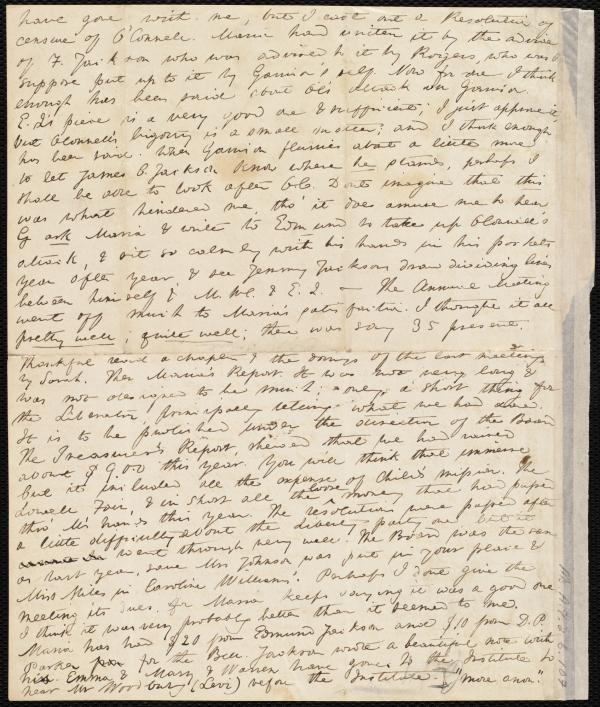 have gone with me, but I cast out a Resolution of
censure of O'Connell. Maria had written it by the advice
of F. Jackson who was advised to it by Rogers, who was I
suppose put up to it by Garrison's self. Now for one I think
enough has been said about O's attack on Garrison.
E. Q's piece is a very good one & sufficient; I just approve it,
but O'Connell's bigotry is a small matter; and I think enough
has been said. When Garrison flurries about a little more
to let James C. Jackson know where he stands, perhaps I
shall be able to look after O'C. Dont imagine that this
was what hindered me, tho' it does amuse me to hear
G. ask Maria & write to Edmund to take up O'Connell's
attack, & sit so calmly with his hands in his pockets
year after year & see Jemmy Jackson draw dividing lines
between himself & M. W. C. & E. Q. — The Annual Meeting
went off much to Maria's satisfaction. I thought it all
pretty well; quite well; there was say 35 present.
Thankful read a chapter & the doings of the last meeting
by Sarah. Then Maria's Report. It was not very long &
was not designed to be much; only a short thing for
the Liberator, principally telling what we had done.
It is to be published under the direction of the Board
The Treasurer's Report, shewed that we had raised
about $900 this year. You will think that immense
but it included all the expense of Child's mission, the
Lowell Fair, & in short all the money that had passed
thro' M's hands this year. The resolutions were passed after
a little difficulty about the liberty party one but it
went through very well. The Board was the same
as last year, save Mrs Johnson was put in your place &
Miss Miles in Caroline Williams'. Perhaps I dont give the
meeting its dues, for Maria keeps saying it was a good one
I think it was very probably better than it seemed to me.
Maria has had $20 from Edmund Jackson and $10 from D. P.
Parker for the Bee. Jackson wrote a beautiful note with
his. Emma & Mary & Warren have gone to the Institute to
hear Mr Woodbury (Levi) before the Institute. "more anon."